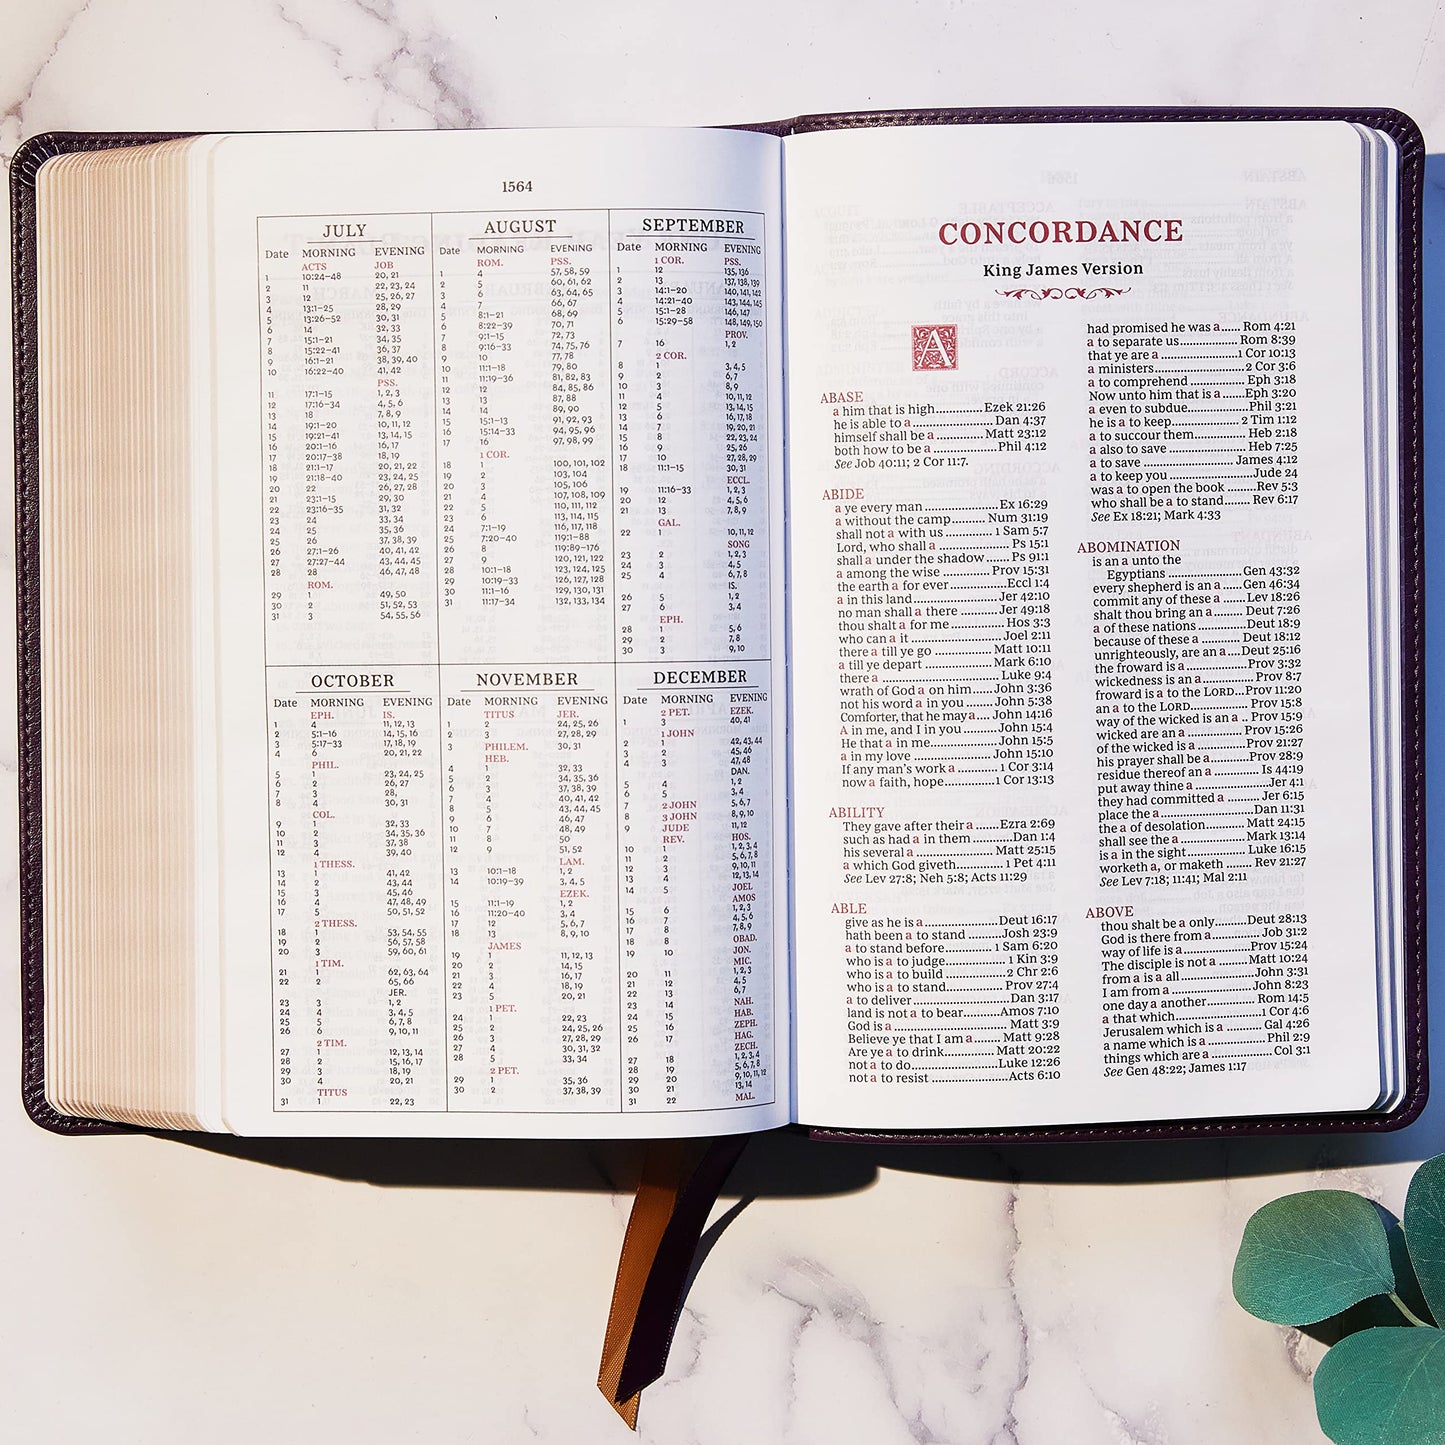 1564
JULY
Date MORNING EVENING
ACTS JOB
1 10:24–48 20, 21
2 11 22, 23, 24
3 12 25, 26, 27
4 13:1–25 28, 29
5 13:26–52 30, 31
6 14 32, 33
7 15:1–21 34, 35
8 15:22–41 36, 37
9 16:1–21 38, 39, 40
10 16:22–40 41, 42
PSS.
11 17:1–15 1, 2, 3
12 17:16–34 4, 5, 6
13 18 7, 8, 9
14 19:1–20 10, 11, 12
15 19:21–41 13, 14, 15
16 20:1–16 16, 17
17 20:17–38 18, 19
18 21:1–17 20, 21, 22
19 21:18–40 23, 24, 25
20 22 26, 27, 28
21 23:1–15 29, 30
22 23:16–35 31, 32
23 24 33, 34
24 25 35, 36
25 26 37, 38, 39
26 27:1–26 40, 41, 42
27 27:27–44 43, 44, 45
28 28 46, 47, 48
ROM.
29 1 49, 50
30 2 51, 52, 53
31 3 54, 55, 56
AUGUST
Date MORNING EVENING
ROM. PSS.
1 4 57, 58, 59
2 5 60, 61, 62
3 6 63, 64, 65
4 7 66, 67
5 8:1–21 68, 69
6 8:22–39 70, 71
7 9:1–15 72, 73
8 9:16–33 74, 75, 76
9 10 77, 78
10 11:1–18 79, 80
11 11:19–36 81, 82, 83
12 12 84, 85, 86
13 13 87, 88
14 14 89, 90
15 15:1–13 91, 92, 93
16 15:14–33 94, 95, 96
17 16 97, 98, 99
1 COR.
18 1 100, 101, 102
19 2 103, 104
20 3 105, 106
21 4 107, 108, 109
22 5 110, 111, 112
23 6 113, 114, 115
24 7:1–19 116, 117, 118
25 7:20–40 119:1–88
26 8 119:89–176
27 9 120, 121, 122
28 10:1–18 123, 124, 125
29 10:19–33 126, 127, 128
30 11:1–16 129, 130, 131
31 11:17–34 132, 133, 134
SEPTEMBER
Date MORNING EVENING
1 COR. PSS.
1 12 135, 136
2 13 137, 138, 139
3 14:1–20 140, 141, 142
4 14:21–40 143, 144, 145
5 15:1–28 146, 147
6 15:29–58 148, 149, 150
PROV.
7 16 1, 2
2 COR.
8 1 3, 4, 5
9 2 6, 7
10 3 8, 9
11 4 10, 11, 12
12 5 13, 14, 15
13 6 16, 17, 18
14 7 19, 20, 21
15 8 22, 23, 24
16 9 25, 26
17 10 27, 28, 29
18 11:1–15 30, 31
ECCL.
19 11:16–33 1, 2, 3
20 12 4, 5, 6
21 13 7, 8, 9
GAL.
22 1 10, 11, 12
SONG
23 2 1, 2, 3
24 3 4, 5
25 4 6, 7, 8
IS.
26 5 1, 2
27 6 3, 4
EPH.
28 1 5, 6
29 2 7, 8
30 3 9, 10
OCTOBER
Date MORNING EVENING
EPH. IS.
1 4 11, 12, 13
2 5:1–16 14, 15, 16
3 5:17–33 17, 18, 19
4 6 20, 21, 22
PHIL.
5 1 23, 24, 25
6 2 26, 27
7 3 28,
8 4 30, 31
COL.
9 1 32, 33
10 2 34, 35, 36
11 3 37, 38
12 4 39, 40
1 THESS.
13 1 41, 42
14 2 43, 44
15 3 45, 46
16 4 47, 48, 49
17 5 50, 51, 52
2 THESS.
18 1 53, 54, 55
19 2 56, 57, 58
20 3 59, 60, 61
1 TIM.
21 1 62, 63, 64
22 2 65, 66
JER.
23 3 1, 2
24 4 3, 4, 5
25 5 6, 7, 8
26 6 9, 10, 11
2 TIM.
27 1 12, 13, 14
28 2 15, 16, 17
29 3 18, 19
30 4 20, 21
TITUS
31 1 22, 23
NOVEMBER
Date MORNING EVENING
TITUS JER.
1 2 24, 25, 26
2 3 27, 28, 29
PHILEM.
3 30, 31
HEB.
4 1 32, 33
5 2 34, 35, 36
6 3 37, 38, 39
7 4 40, 41, 42
8 5 43, 44, 45
9 6 46, 47
10 7 48, 49
11 8 50
12 9 51, 52
LAM.
13 10:1–18 1, 2
14 10:19–39 3, 4, 5
EZEK.
15 11:1–19 1, 2
16 11:20–40 3, 4
17 12 5, 6, 7
18 13 8, 9, 10
JAMES
19 1 11, 12, 13
20 2 14, 15
21 3 16, 17
22 4 18, 19
23 5 20, 21
1 PET.
24 1 22, 23
25 2 24, 25, 26
26 3 27, 28, 29
27 4 30, 31, 32
28 5 33, 34
2 PET.
29 1 35, 36
30 2 37, 38, 39
DECEMBER
Date MORNING EVENING
2 PET. EZEK.
1 3 40, 41
1 JOHN
2 1 42, 43, 44
3 2 45, 46
4 3 47, 48
DAN.
5 4 1, 2
6 5 3, 4
7 2 JOHN 5, 6, 7
8 3 JOHN 8, 9, 10
9 JUDE 11, 12
REV. HOS.
10 1 1, 2, 3, 4
11 2 5, 6, 7, 8
12 3 9, 10, 11
13 4 12, 13, 14
14 5 JOEL
AMOS
15 6 1, 2, 3
16 7 4, 5, 6
17 8 7, 8, 9
18 8 OBAD.
19 10 JON.
MIC.
20 11 1, 2, 3
21 12 4, 5
22 13 6, 7
23 14 NAH.
24 15 HAB.
25 16 ZEPH.
26 17 HAG.
ZECH.
27 18 1, 2, 3, 4
28 19 5, 6, 7, 8
29 20 9, 10, 11, 12
30 21 13, 14
31 22 MAL.
CONCORDANCE
King James Version
A
ABASE
a him that is high Ezek 21:26
he is able to a Dan 4:37
himself shall be a Matt 23:12
both how to be a Phil 4:12
See Job 40:11; 2 Cor 11:7.
ABIDE
a ye every man Ex 16:29
a without the camp Num 31:19
shall not a with us 1 Sam 5:7
Lord, who shall a Ps 15:1
shall a under the shadow Ps 91:1
a among the wise Prov 15:31
the earth a for ever Eccl 1:4
a in this land Jer 42:10
no man shall a there Jer 49:18
thou shalt a for me Hos 3:3
who can a it Joel 2:11
there a till ye go Matt 10:11
a till ye depart Mark 6:10
there a Luke 9:4
wrath of God a on him John 3:36
not his word a in you John 5:38
Comforter, that he may a John 14:16
A in me, and I in you John 15:4
He that a in me John 15:5
a in my love John 15:10
If any man's work a 1 Cor 3:14
now a faith, hope 1 Cor 13:13
ABILITY
They gave after their a Ezra 2:69
such as had a in them Dan 1:4
his several a Matt 25:15
a which God giveth 1 Pet 4:11
See Lev 27:8; Neh 5:8; Acts 11:29
ABLE
give as he is a Deut 16:17
hath been a to stand Josh 23:9
a to stand before 1 Sam 6:20
who is a to judge 1 Kin 3:9
who is a to build 2 Chr 2:6
who is a to stand Prov 27:4
a to deliver Dan 3:17
land is not a to bear Amos 7:10
God is a Matt 3:9
Believe ye that I am a Matt 9:28
Are ye a to drink Matt 20:22
not a to do Luke 12:26
not a to resist Acts 6:10
had promised he was a Rom 4:21
a to separate us Rom 8:39
that ye are a 1 Cor 10:13
a ministers 2 Cor 3:6
a to comprehend Eph 3:18
Now unto him that is a Eph 3:20
a even to subdue Phil 3:21
he is a to keep 2 Tim 1:12
a to succour them Heb 2:18
a also to save Heb 7:25
a to save James 4:12
a to keep you Jude 24
was a to open the book Rev 5:3
who shall be a to stand Rev 6:17
See Ex 18:21; Mark 4:33
ABOMINATION
is an a unto the
Egyptians Gen 43:32
every shepherd is an a Gen 46:34
commit any of these a Lev 18:26
shalt thou bring an a Deut 7:26
a of these nations Deut 18:9
because of these a Deut 18:12
unrighteously, are an a Deut 25:16
the froward is a Prov 3:32
wickedness is an a Prov 8:7
froward is a to the LORD Prov 11:20
an a to the LORD Prov 15:8
way of the wicked is an a Prov 15:9
wicked are an a Prov 15:26
of the wicked is a Prov 21:27
his prayer shall be a Prov 28:9
residue thereof an a Is 44:19
put away thine a Jer 4:1
they had committed a Jer 6:15
place the a Dan 11:31
the a of desolation Matt 24:15
shall see the a Mark 13:14
is a in the sight Luke 16:15
worketh a, or maketh Rev 21:27
See Lev 7:18; 11:41; Mal 2:11
ABOVE
thou shalt be a only Deut 28:13
God is there from a Job 31:2
way of life is a Prov 15:24
The disciple is not a Matt 10:24
from a is a all John 3:31
I am from a John 8:23
one day a another Rom 14:5
a that which 1 Cor 4:6
Jerusalem which is a Gal 4:26
a name which is a Phil 2:9
things which are a Col 3:1
See Gen 48:22; James 1:17